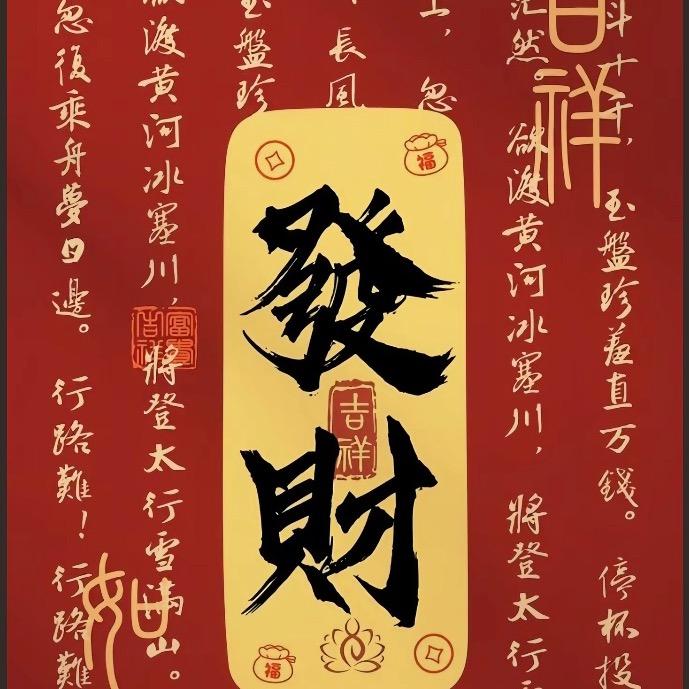 吉祥
斗十千，玉盤珍羞直万錢。停杯投
茫然。欲渡黄河冰塞川，將登太行
上，忽
長風
玉盤珍
福
發財
吉祥
福
欲渡黄河冰塞川，將登太行雪滿山。
富貴吉祥
忽復乘舟夢日邊。行路難！行路難
如